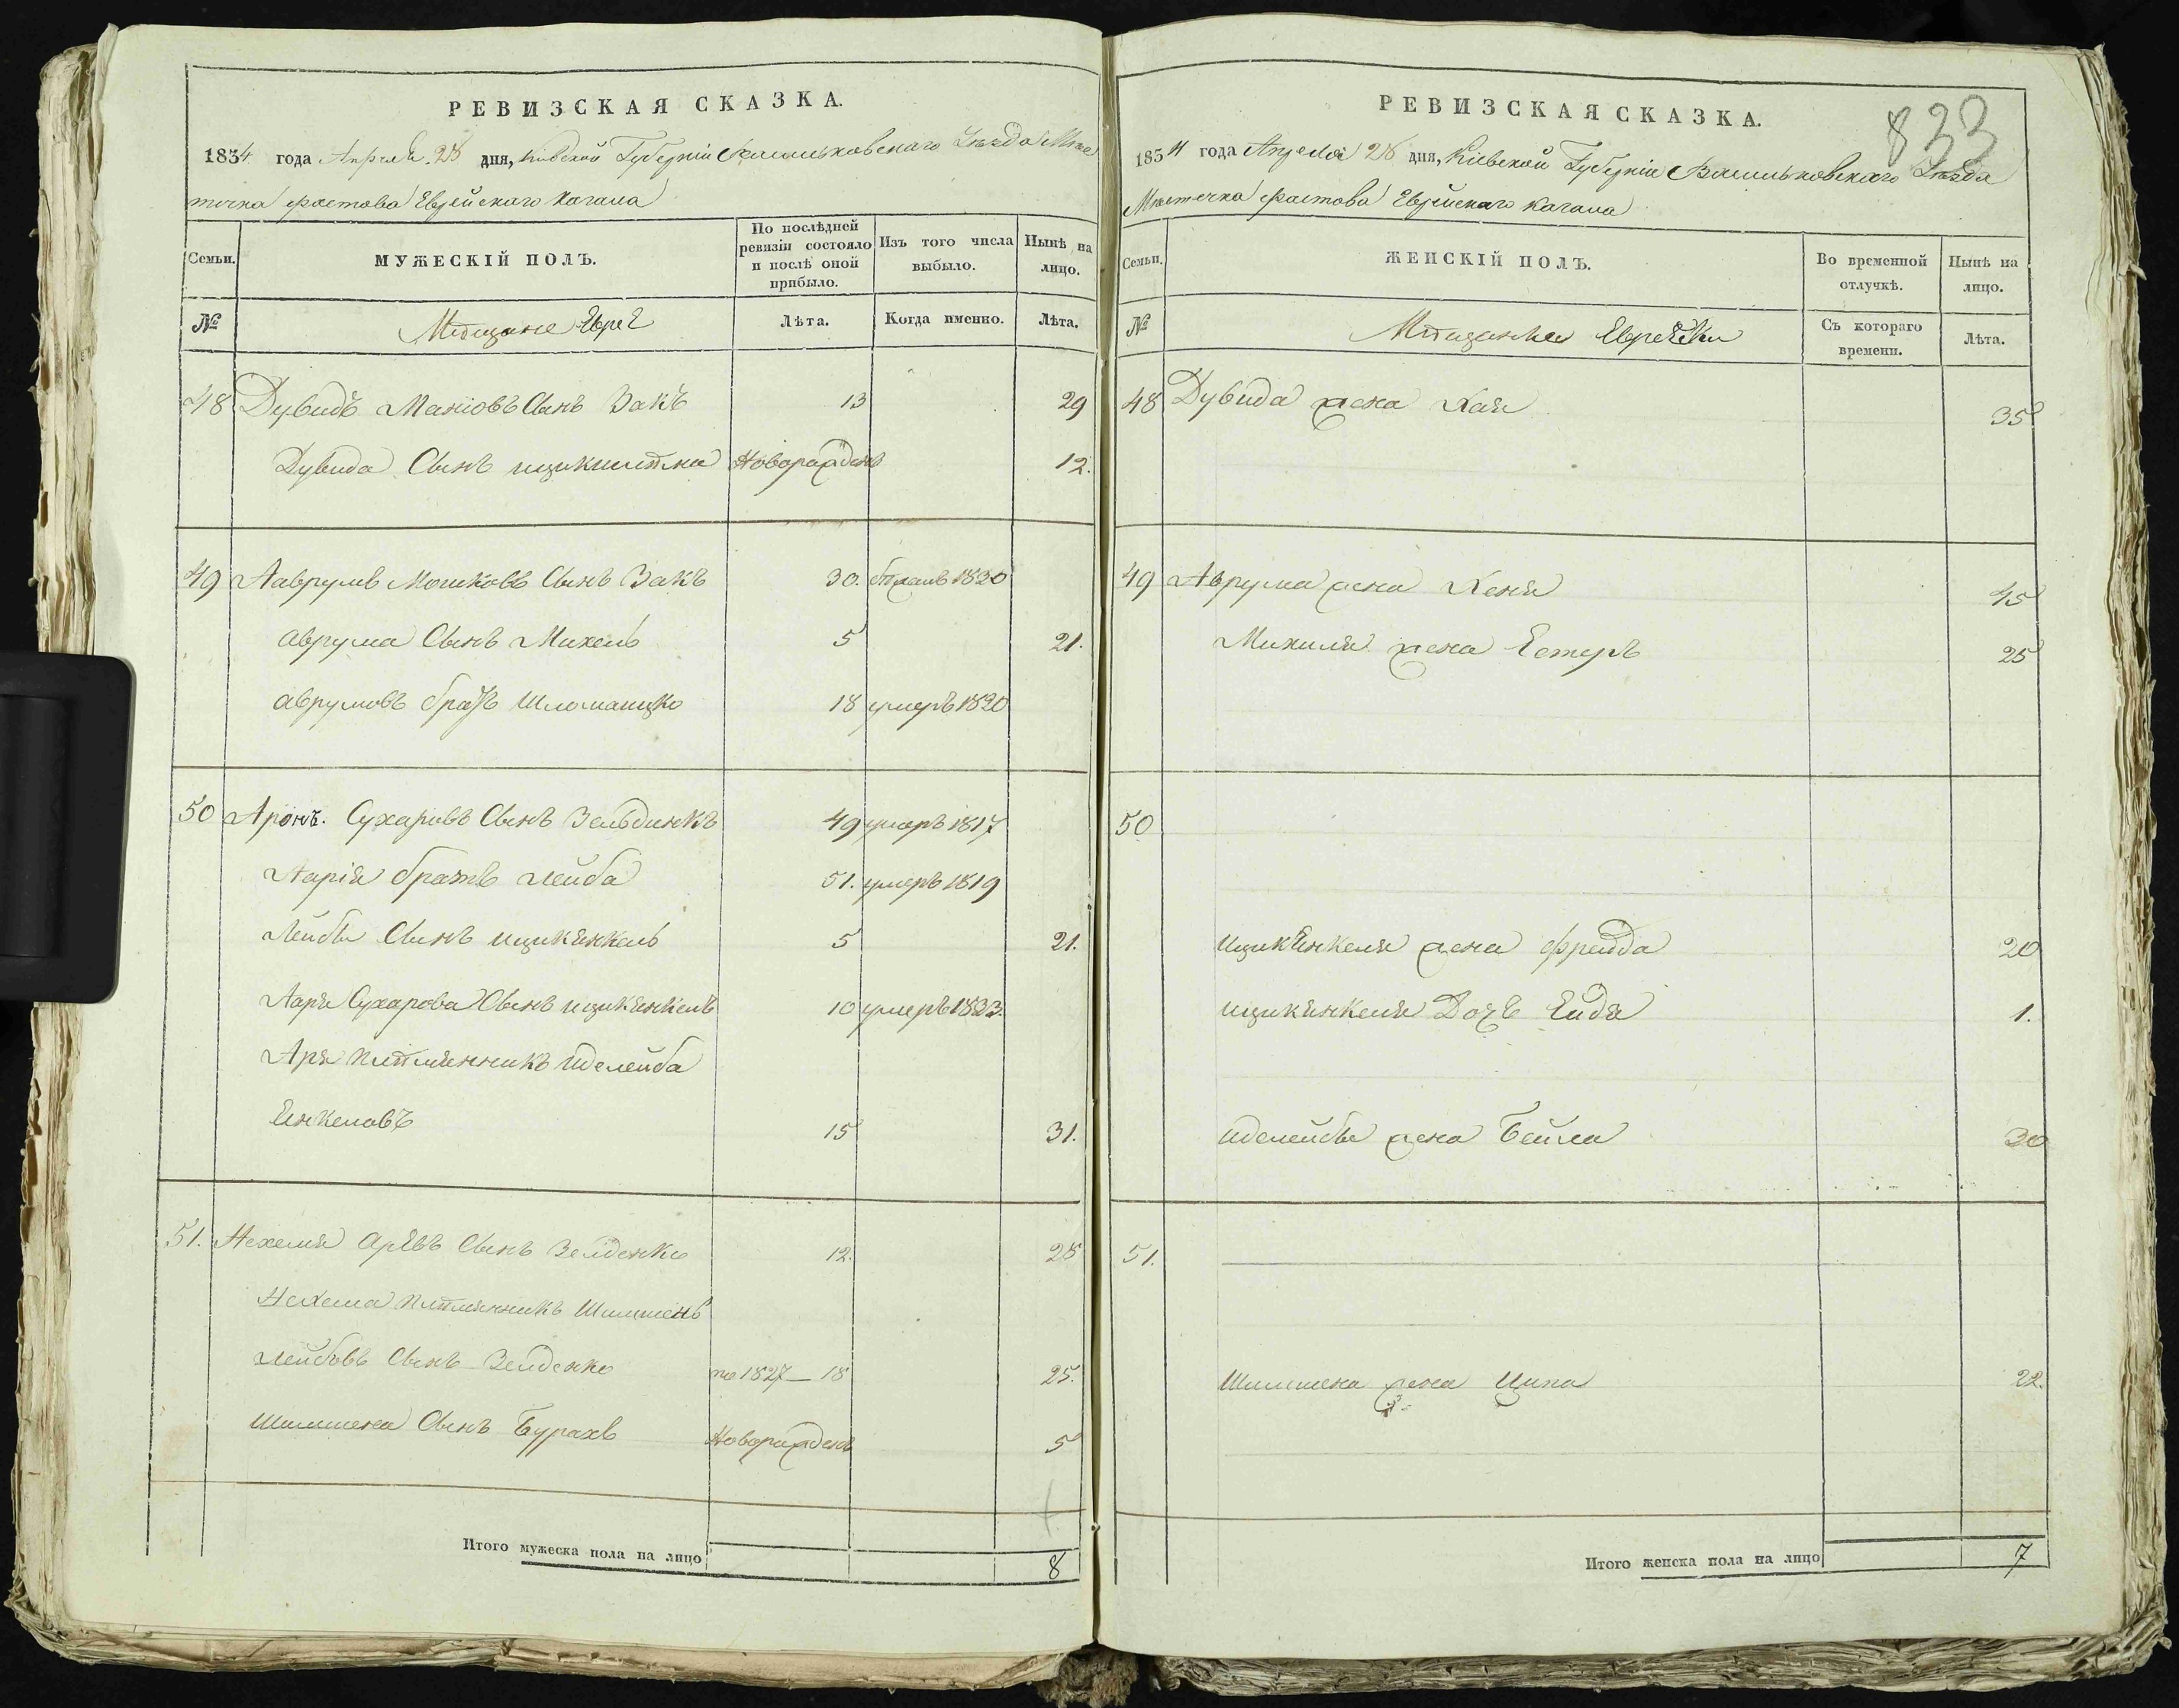 РЕВИЗСКАЯ СКАЗКА.
1834 года Апреля 28 дня, Киевской Губернии Васильковского Уезда Месте
течка Фастова Еврейского Кагала
Семьи. МУЖЕСКІЙ ПОЛЪ. По послѣдней ревизіи состояло и послѣ оной прибыло. Изъ того числа выбыло. Нынѣ на лицо.
№ Мещане Евреи Лѣта. Когда именно. Лѣта.
48 Дувидъ Маніовъ Сынъ Закъ 13 29
Дувида Сынъ Новорожденъ 12.
49 Аврумъ Мошковъ Сынъ Закъ 30. 1830
Аврума Сынъ Михель 5 21.
Аврумовъ братъ Шломаицко 18 умеръ 1830
50 Аронъ. Сухаровъ Сынъ Зельдинкъ 49 умеръ 1817
Аарія братъ Лейба 51. умеръ 1819
Лейбы Сынъ Ицикянкель 5 21.
Ааря Сухарова Сынъ Ицикянкель 10 умеръ 1833.
Аря племянникъ Иделейба
Енкеловъ 15 31.
51. Нехемя Арявъ Сынъ Зелденко 12. 28
Нехема племянникъ Шимшенъ
Лейбовъ Сынъ Зелденко по 1827 — 18 25.
Шимшена Сынъ Бурахъ Новорожденъ 5
Итого мужеска пола на лицо 8
833
РЕВИЗСКАЯ СКАЗКА.
1834 года Апреля 28 дня, Кіевской Губерніи Васильковского Уезда
Местечка Фастова Еврейского Кагала
Семьи. ЖЕНСКІЙ ПОЛЪ. Во временной отлучкѣ. Нынѣ на лицо.
№ Мещанки Еврейки Съ котораго времени. Лѣта.
48 Дувида жена Хая 35
49 Аврума жена Хеня 45
Михиля жена Естеръ 25
50
Ицикенкеля жена Фрейда 20
Ицикянкеля Дочь Ейдя 1.
Иделейбы жена Бейла 30
51.
Шимшена жена Ципа 22.
Итого женска пола на лицо 7